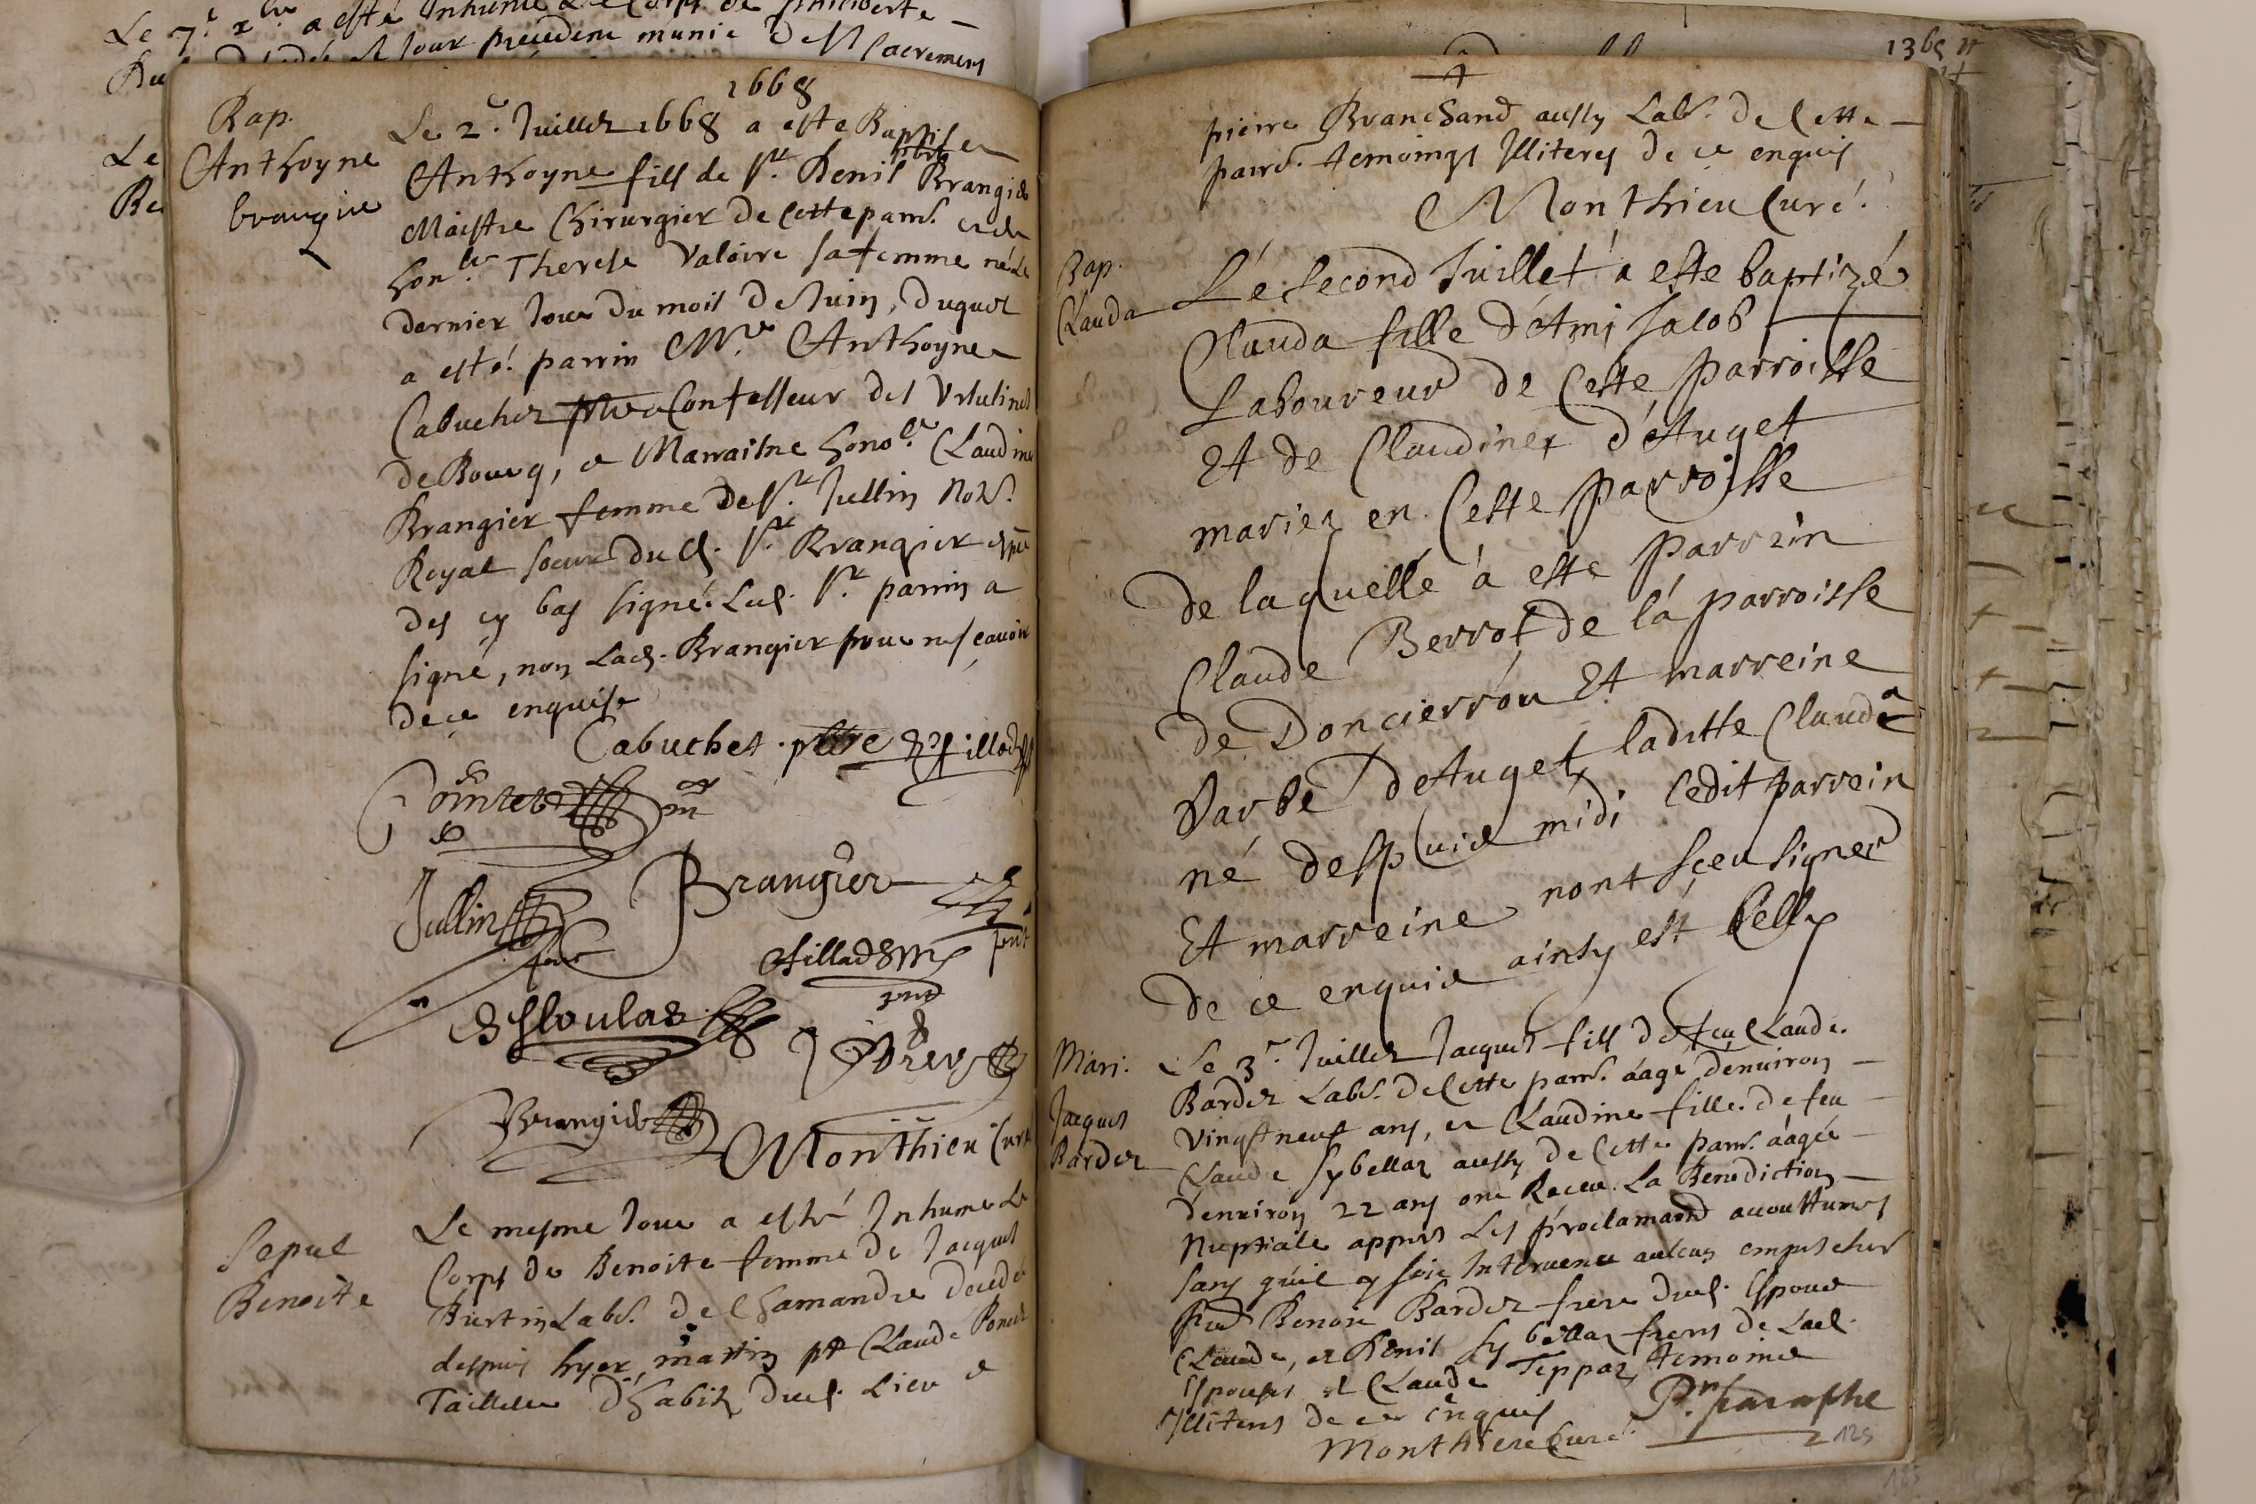 Le 7e xbre a esté Inhumé Le Corps de philiberte
jour precedent munie Des Sacremens
Le
1668
Bap.
Anthoyne
brangier
Le 2e. Juillet 1668 a este Baptisé
Anthoyne fils de Sr. Denis Brangier
Maistre Chirurgien de Cette parr. et de
hon.ble Therese Valoire sa femme né Le
dernier Jour du mois De Juin, duquel
a esté parrin Mre Anthoyne
Cabuchet pbre Confesseur des Ursulines
de Bourg, et Marraisne hono.ble Claudine
Brangier femme de Sr. Jullin Not.
Royal soeur dud. Sr. Brangier
des cy bas signé. Led. Sr. parrin a
signé, non Lad. Brangier pour ne sçavoir
de ce enquise
Cabuchet pbre
Jullin
Brangier
Brangier
Monthieu Curé
Sepul
Benoite
Le mesme Jour a esté Inhumé Le
Corps de Benoite femme de Jacques
Lab. de Chamandre decedé
despuis hyer matin pt Claude Poncet
Tailleur d'habits dud. Lieu et
1365
pierre Branchand aussy Lab. de Cette
parr. temoings Illiteres de ce enquis
Monthieu Curé.
Bap.
Clauda
Le second Juillet a esté baptizé
Clauda fille d'Ami Jacob
Laboureur de Cette parroisse
Et de Claudine d'Auget
mariez en Cette parroisse
de laquelle a este parrein
Claude Berrot de la parroisse
de Doncierrou Et marreine
Barbe d'Auget ladite Clauda
né despuis midi ledit parrein
Et marreine nont sceu signer
de ce enquis ainsy est
Mari.
Jacques
Bardet
Le 3e. Juillet Jacques fils de feu Claude
Bardet Lab. de Cette parr. aagé d'environ
vingt neuf ans, et Claudine fille de feu
Claude Sybellaz aussy de Cette parr. aagée
d'environ 22 ans ont Receu La Benediction
Nuptiale appres Les proclamaons accoustumes
sans qu'il y soit Intervenu aulcun empeschet
Benoit Bardet frere dud. Espoux
Claude, et Denis Sybellaz freres de Lad.
Espouse et Claude Teppaz temoins
Illiters de ce enquis
Monthieu Curé.
Pr. paraphe
125